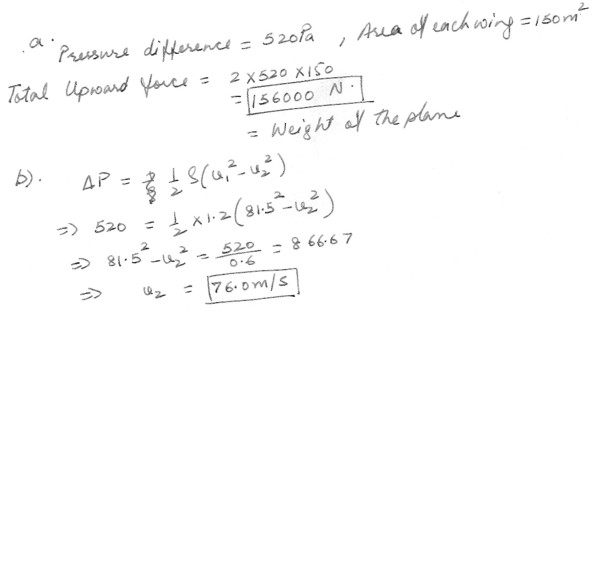 a. Pressure difference = 520Pa , Area of each wing = 150m²
Total Upward force = 2 × 520 × 150
= 156000 N.
= Weight of the plane
b). ΔP = 1/2 ρ(v₁² - v₂²)
=> 520 = 1/2 × 1.2 (81.5² - v₂²)
=> 81.5² - v₂² = 520/0.6 = 866.67
=> v₂ = 76.0 m/s